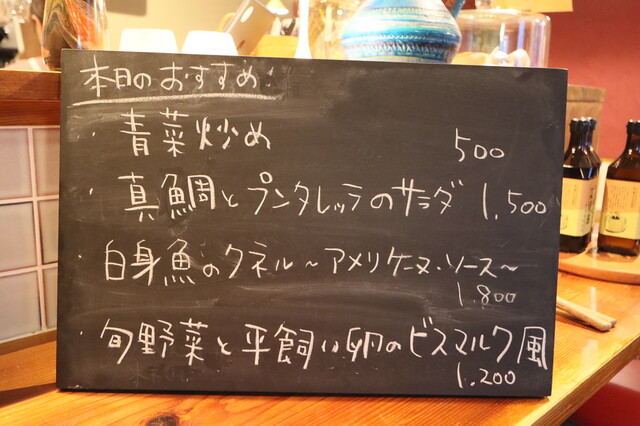 本日のおすすめ!
・青菜炒め 500
・真鯛とプンタレッテのサラダ 1,500
・白身魚のクネル〜アメリケーヌ・ソース〜
1,800
・旬野菜と平飼い卵のビスマルク風
1,200